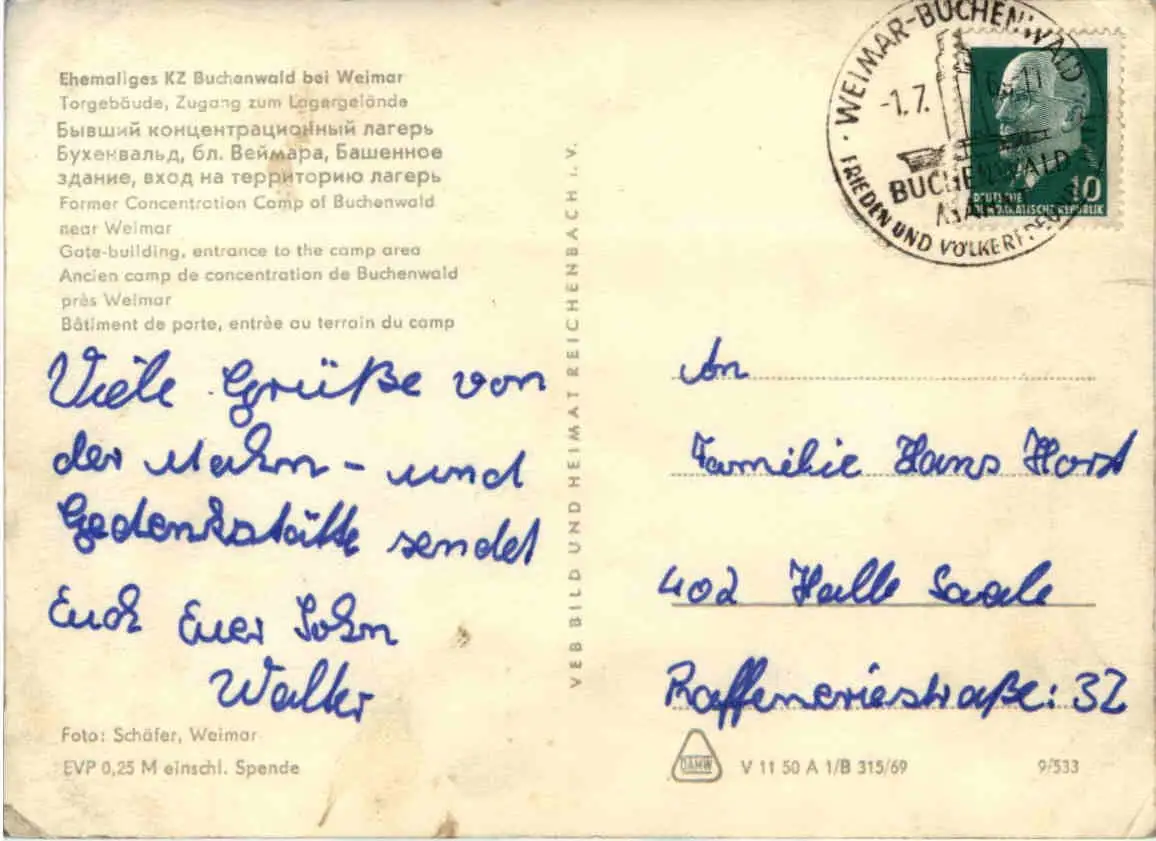 Ehemaliges KZ Buchenwald bei Weimar
Torgebäude, Zugang zum Lagergelände
Бывший концентрационный лагерь
Бухенвальд, бл. Веймара, Башенное
здание, вход на территорию лагерь
Former Concentration Camp of Buchenwald
near Weimar
Gate-building, entrance to the camp area
Ancien camp de concentration de Buchenwald
près Weimar
Bâtiment de porte, entrèe au terrain du camp
Viele Grüße von
der Mahn- und
Gedenkstätte sendet
Euch Euer Sohn
Walter
Foto: Schäfer, Weimar
EVP 0,25 M einschl. Spende
VEB BILD UND HEIMAT REICHENBACH i. V.
WEIMAR-BUCHENWALD
-1.7.
BUCHENWALD
FRIEDEN UND
DEUTSCHE
DEMOKRATISCHE REPUBLIK
10
An
Familie Hans Horst
402 Halle Saale
Raffeneriestraße: 32
DAMW
V 11 50 A 1/B 315/69
9/533